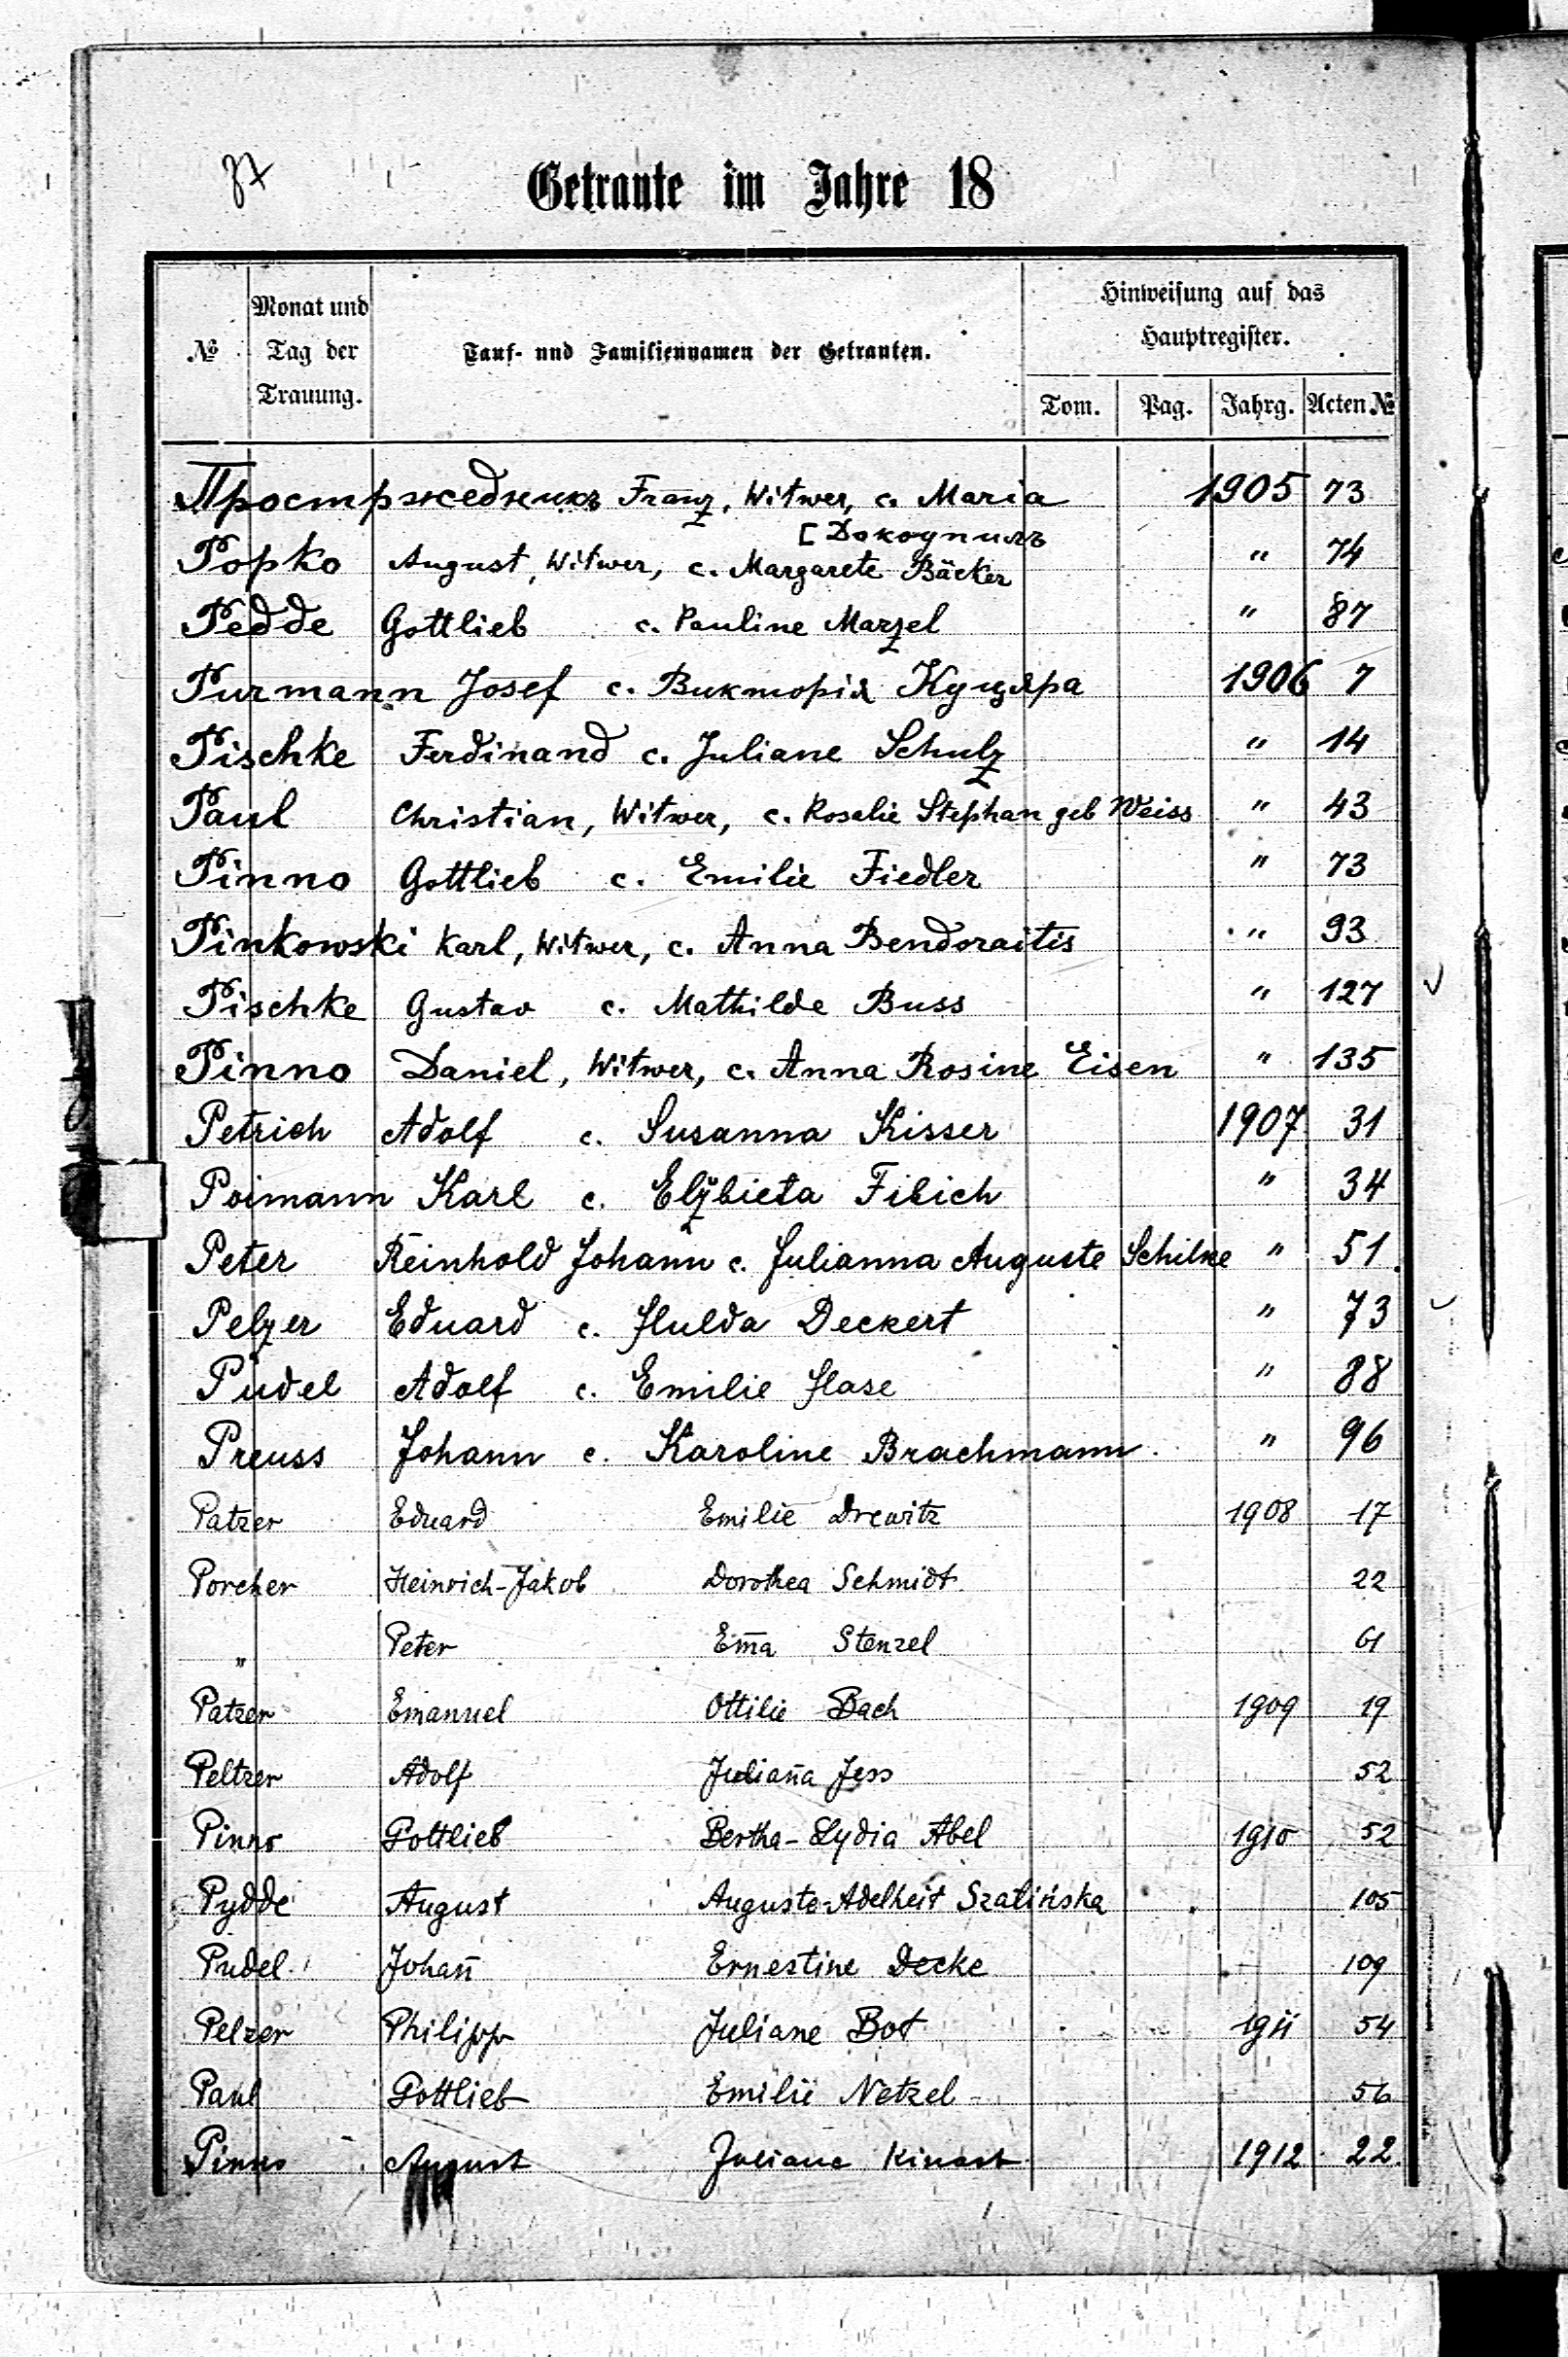 Getraute im Jahre 18
№ Monat und Tag der Trauung. Tauf- und Familiennamen der Getrauten. Hinweisung auf das Hauptregister.
Tom. Pag. Jahrg. Acten №
Простржедникъ Franz, Witwer, c. Maria 1905 73
[Докодупилъ
Popko August, Witwer, c. Margarete Bäcker " 74
Pedde Gottlieb c. Pauline Marzel " 87
Purmann Josef c. Викторiя Куцяра 1906 7
Pischke Ferdinand c. Juliane Schulz " 14
Paul Christian, Witwer, c. Rosalie Stephan geb Weiss " 43
Pinno Gottlieb c. Emilie Fiedler " 73
Pinkowski Karl, Witwer, c. Anna Bendoraitis " 93
Pischke Gustav c. Mathilde Buss " 127
Pinno Daniel, Witwer, c. Anna Rosine Eisen " 135
Petrich Adolf c. Susanna Kisser 1907 31
Poimann Karl c. Elżbieta Filich " 34
Peter Reinhold Johann c. Julianna Auguste Schilke " 51
Pelzer Eduard c. Hulda Deckert " 73
Pudel Adolf c. Emilie Hase " 88
Preuss Johann c. Karoline Brachmann " 96
Patzer Eduard Emilie Drewitz 1908 17
Porcher Heinrich-Jakob Dorothea Schmidt 22
" Peter Em̄a Stenzel 61
Patzer Emanuel Ottilie Bach 1909 19
Peltzer Adolf Julian̄a Jess 52
Pinno Gottlieb Bertha-Lydia Abel 1910 52
Pydde August Auguste-Adelheit Szalińska 105
Pudel Johan̄ Ernestine Decke 109
Pelzer Philipp Juliane Bot 1911 54
Paul Gottlieb Emilie Netzel 56
Pinno August Juliana Kinast 1912 22